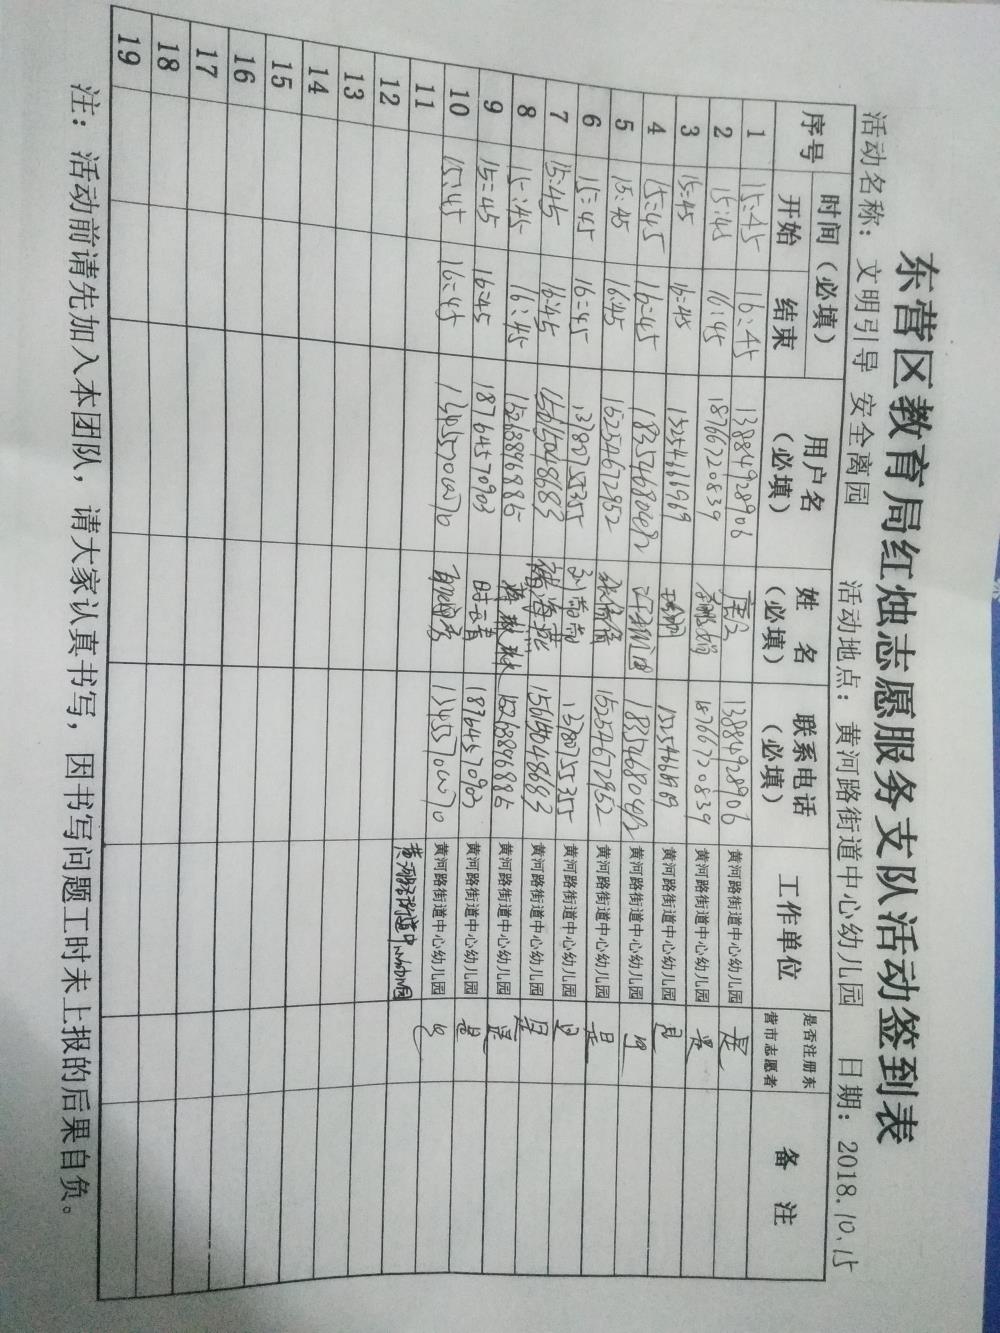 东营区教育局红烛志愿服务支队活动签到表
活动名称：文明引导 安全离园 活动地点：黄河路街道中心幼儿园 日期：2018.10.15
序号 时间（必填） 用户名（必填） 姓名（必填） 联系电话（必填） 工作单位 是否注册东营市志愿者 备注
开始 结束
1 15:45 16:45 13884928906 13884928906 黄河路街道中心幼儿园 是
2 15:45 16:45 18766720839 18766720839 黄河路街道中心幼儿园 是
3 15:45 16:45 黄河路街道中心幼儿园 是
4 15:45 16:45 18354680492 18354680492 黄河路街道中心幼儿园 是
5 15:45 16:45 15254672952 15254672952 黄河路街道中心幼儿园 是
6 15:45 16:45 13780755355 13780755355 黄河路街道中心幼儿园 是
7 15:45 16:45 15615048683 储海燕 15615048683 黄河路街道中心幼儿园 是
8 15:45 16:45 15268896885 15268896885 黄河路街道中心幼儿园 是
9 15:45 16:45 18764570903 时云青 18764570903 黄河路街道中心幼儿园 是
10 15:45 16:45 黄河路街道中心幼儿园 是
11 黄河路街道中心幼儿园
12
13
14
15
16
17
18
19
注：活动前请先加入本团队，请大家认真书写，因书写问题工时未上报的后果自负。